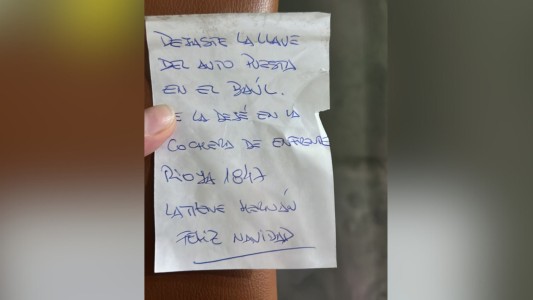 DEJASTE LA LLAVE
DEL AUTO PUESTA
EN EL BAÚL.
E LA DEJÉ EN LA
COCHERA DE ENFRENTE
RIOJA 1847
LA TIENE HERNÁN
FELIZ NAVIDAD